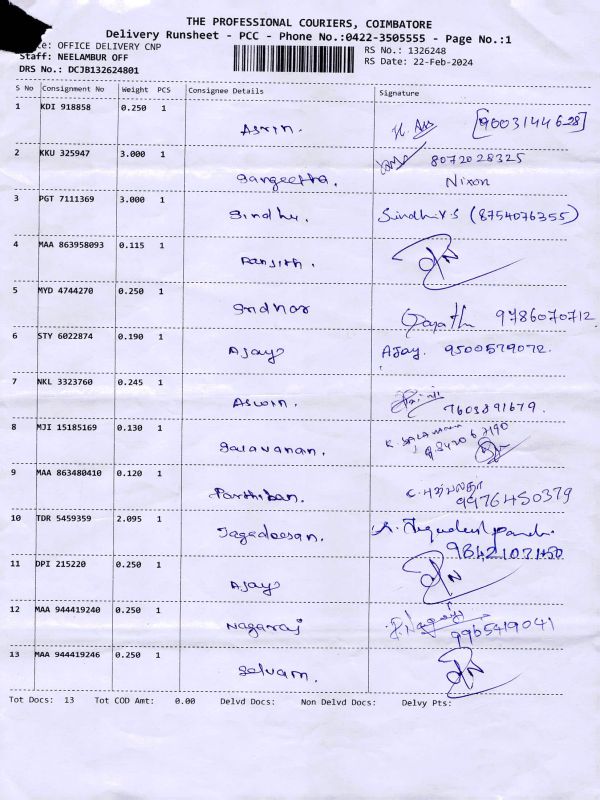 THE PROFESSIONAL COURIERS, COIMBATORE
Delivery Runsheet - PCC - Phone No.:0422-3505555 - Page No.:1
: OFFICE DELIVERY CNP RS No.: 1326248
Staff: NEELAMBUR OFF RS Date: 22-Feb-2024
DRS No.: DCJB132624801
S No Consignment No Weight PCS Consignee Details Signature
1 KDI 918858 0.250 1
Asrin.
2 KKU 325947 3.000 1 8072028325
Sangeetha. Nixon
3 PGT 7111369 3.000 1
Sindhu. Sindhu V.S (8754076355)
4 MAA 863958093 0.115 1
Ranjith.
5 MYD 4744270 0.250 1
Sridhar 9786070712
6 STY 6022874 0.190 1
Ajay Ajay. 9500579072.
7 NKL 3323760 0.245 1
Aswin. 7603891679.
8 MJI 15185169 0.130 1
Saravanan.
9 MAA 863480410 0.120 1
Parthiban. 9976450379
10 TDR 5459359 2.095 1
Jagadeesan.
11 DPI 215220 0.250 1
Ajay
12 MAA 944419240 0.250 1
Nagaraj P. Nagaraj
9965419041
13 MAA 944419246 0.250 1
Selvam.
Tot Docs: 13 Tot COD Amt: 0.00 Delvd Docs: Non Delvd Docs: Delvy Pts: